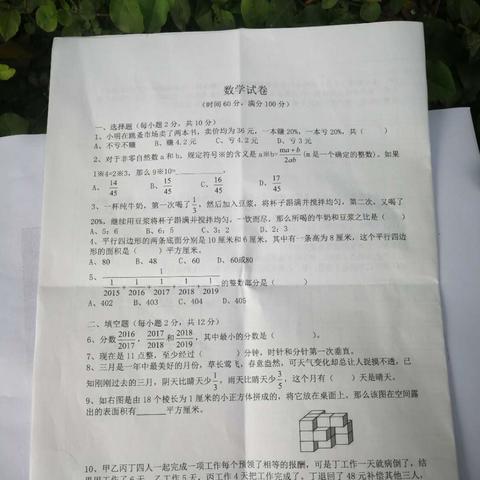 数学试卷
（时间 60 分，满分 100 分）
一、选择题（每小题 2 分，共 10 分）
1、小明在跳蚤市场卖了两本书，卖价均为 36 元，一本赚 20%，一本亏 20%，共（ ）
A、不亏不赚 B、赚 4.2 元 C、亏 4.2 元 D、亏 3 元
2、对于非零自然数 a 和 b，规定符号※的含义是 a※b=(ma+b)/(2ab)(m 是一个确定的整数)。如果
1※4=2※3，那么 9※10=________。
A、14/45 B、15/45 C、16/45 D、17/45
3、一杯纯牛奶，第一次喝了1/3，然后加入豆浆，将杯子蹓满并搅拌均匀，第二次，又喝了
20%，继续用豆浆将杯子蹓满并搅拌均匀，一饮而尽，那么所喝的牛奶和豆浆之比是（ ）
A、5：6 B、6：5 C、3：2 D、2：3
4、平行四边形的两条底面分别是 10 厘米和 6 厘米，其中有一条高为 8 厘米，这个平行四边
形的面积是（ ）平方厘米。
A、80 B、48 C、60 D、60或80
5、1/(1/2015+1/2016+1/2017+1/2018+1/2019)的整数部分是（ ）
A、402 B、403 C、404 D、405
二、填空题（每小题 2 分，共 12 分）
6、分数2016/2017，2017/2018和2018/2019，其中最小的分数是（ ）。
7、现在是 11 点整，至少经过（ ）分钟，时针和分针第一次垂直。
8、三月是一年中最美好的月份，草长莺飞，春意盎然，可天气变化却总让人捉摸不透，已
知刚刚过去的三月，阴天比晴天少1/3，雨天比晴天少3/5，这个月有（ ）天是晴天。
9、如右图是由 18 个棱长为 1 厘米的小正方体拼成的，将它放在桌面上，那么该图在空间露
出的表面积有______平方厘米。
10、甲乙丙丁四人一起完成一项工作每个预领了相等的报酬，可是丁工作一天就病倒了，结
天，乙工作 5 天，丙工作 4 天把工作完成了。丁退回了 48 元补偿其他三人，